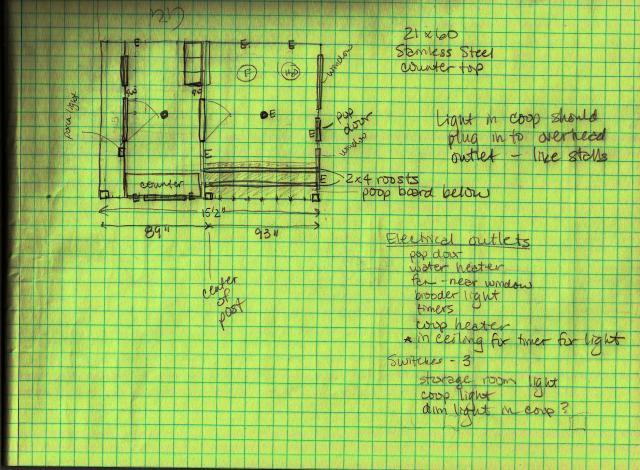 21 x 60
Stainless Steel
counter top
window
porch light
F
H2O
E
pop
door
window
Light in coop should
plug in to overhead
outlet - like stalls
E
E
counter
2x4 roosts
poop board below
15'2"
89"
93"
center
of
post
Electrical outlets
pop door
water heater
fan - near window
brooder light
timers
coop heater
* in ceiling for timer for light
Switches - 3
storage room light
coop light
dim light in coop?